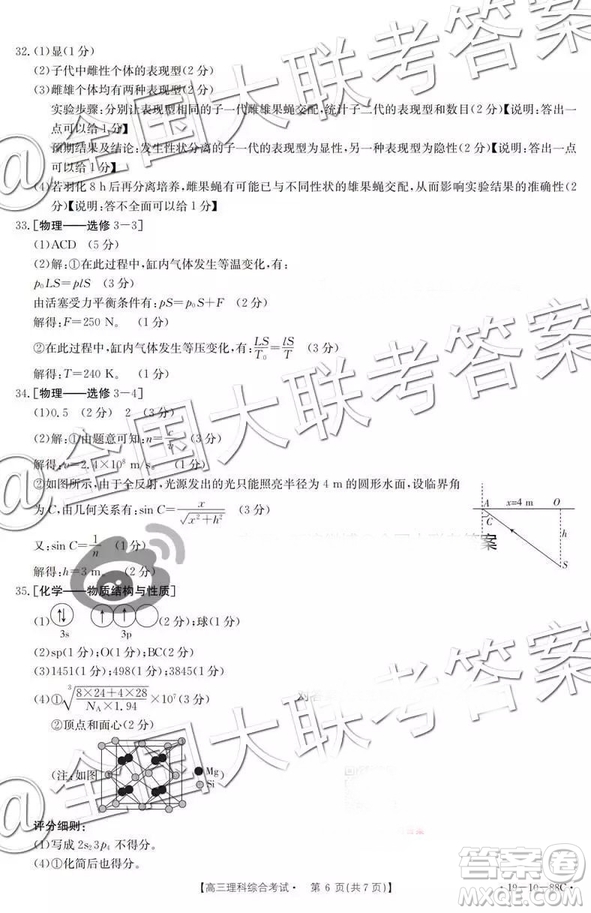 32.(1)显(1分)
(2)子代中雌性个体的表现型(2分)
(3)雌雄个体均有两种表现型(2分)
实验步骤:分别让表现型相同的子一代雌雄果蝇交配,统计子二代的表现型和数目(2分)【说明:答出一
点可以给1分】
预期结果及结论:发生性状分离的子一代的表现型为显性,另一种表现型为隐性(2分)【说明:答出一点
可以给1分】
(4)若羽化8h后再分离培养,雌果蝇可能已经与不同性状的雄果蝇交配,从而影响实验结果的准确性(2
分)【说明:答不全面可以给1分】
33.[物理——选修3-3]
(1)ACD (5分)
(2)解:①在此过程中,缸内气体发生等温变化,有
p₀LS=plS (3分)
由活塞受力平衡条件有:pS=p₀S+F (3分)
解得:F=250 N。 (1分)
②在此过程中,缸内气体发生等压变化,有:LS/T₀=lS/T (3分)
解得:T=240 K。 (1分)
34.[物理——选修3-4]
(1)0.5 (2分) 2 (3分)
(2)解:①由题意可知:n=c/v (2分)
解得:v=2.4×10⁸ m/s。 (1分)
②如图所示,由于全反射,光源发出的光只能照亮半径为4 m的圆形水面,设临界角
为C,由几何关系有:sin C=x/√(x²+h²) (3分)
A x=4 m O
C h
S
又:sin C=1/n (1分)
解得:h=3 m。 (1分)
35.[化学——物质结构与性质]
(1) 3s 3p ;球(1分)
(2)sp(1分);O(1分);BC(2分)
(3)1451(1分);498(1分);3845(1分)
(4)①³√((8×24+4×28)/(N_A×1.94))×10⁷(3分)
②顶点和面心(2分)
(注:如图 Mg
Si
评分细则:
(1)写成2s₂3p₄不得分。
(4)①化简后也得分。
【高三理科综合考试· 第6页(共7页)】 ·19-10-88C·
@全国大联考答案